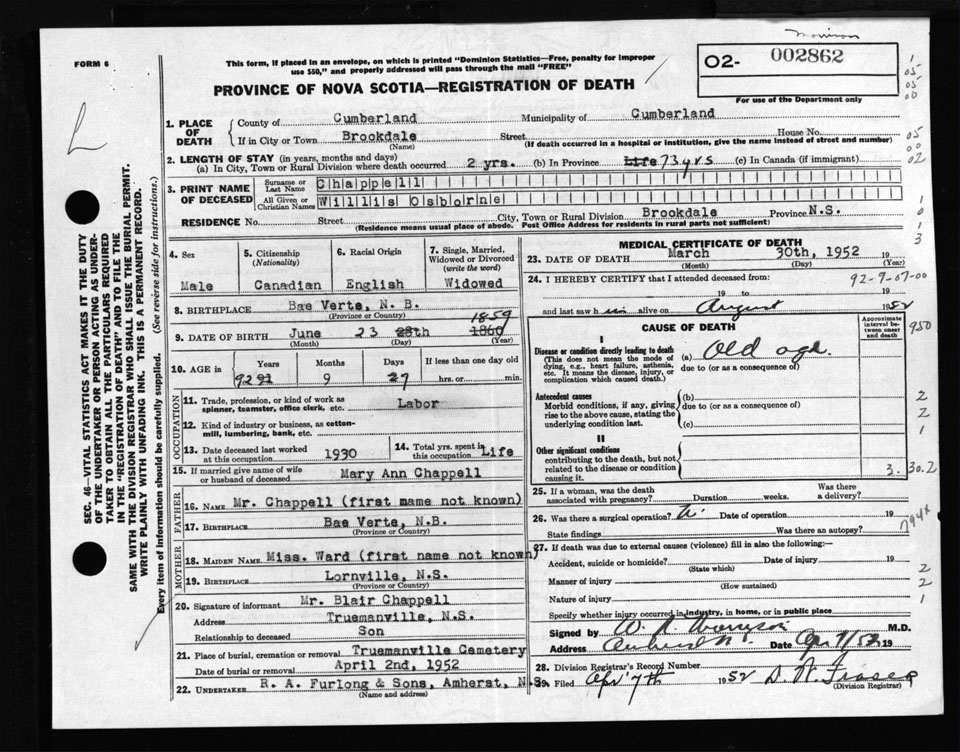 Morrison
FORM 6
This form, if placed in an envelope, on which is printed "Dominion Statistics—Free, penalty for improper
use $50," and properly addressed will pass through the mail "FREE"
O2-
002862
For use of the Department only
PROVINCE OF NOVA SCOTIA—REGISTRATION OF DEATH
1. PLACE OF DEATH
County of Cumberland Municipality of Cumberland
If in City or Town Brookdale Street House No.
(Name) (If death occurred in a hospital or institution, give the name instead of street and number)
2. LENGTH OF STAY (in years, months and days)
(a) In City, Town or Rural Division where death occurred 2 yrs. (b) In Province Life 73 yrs (c) In Canada (if immigrant)
3. PRINT NAME OF DECEASED
Surname or Last Name Chappell
All Given or Christian Names Willis Osborne
RESIDENCE No. Street City, Town or Rural Division Brookdale Province N.S.
(Residence means usual place of abode. Post Office Address for residents in rural parts not sufficient)
4. Sex
Male
5. Citizenship
(Nationality)
Canadian
6. Racial Origin
English
7. Single, Married,
Widowed or Divorced
(write the word)
Widowed
8. BIRTHPLACE Bae Verte, N. B.
(Province or Country)
1859
9. DATE OF BIRTH June 23 28th 1860
(Month) (Day) (Year)
10. AGE in
Years Months Days If less than one day old
92 91 9 27 hrs. or min.
OCCUPATION
11. Trade, profession, or kind of work as
spinner, teamster, office clerk, etc. Labor
12. Kind of industry or business, as cotton-
mill, lumbering, bank, etc.
13. Date deceased last worked
at this occupation 1930
14. Total yrs. spent in
this occupation Life
15. If married give name of wife
or husband of deceased Mary Ann Chappell
FATHER
16. NAME Mr. Chappell (first mame not known)
17. BIRTHPLACE Bae Verte, N.B.
(Province or Country)
MOTHER
18. MAIDEN NAME Miss. Ward (first name not known)
19. BIRTHPLACE Lornville, N.S.
(Province or Country)
20. Signature of informant Mr. Blair Chappell
Address Truemanville, N.S.
Relationship to deceased Son
21. Place of burial, cremation or removal Truemanville Cemetery
Date of burial or removal April 2nd, 1952
22. UNDERTAKER R. A. Furlong & Sons, Amherst, N.S.
(Name and address)
MEDICAL CERTIFICATE OF DEATH
23. DATE OF DEATH March 30th, 1952 19
(Month) (Day) (Year)
24. I HEREBY CERTIFY that I attended deceased from:
92-9-07-00
19 to 19
and last saw him alive on August 1952
CAUSE OF DEATH
Approximate
interval be-
tween onset
and death
I
Disease or condition directly leading to death
(This does not mean the mode of
dying, e.g., heart failure, asthenia,
etc. It means the disease, injury, or
complication which caused death.)
(a) Old age.
due to (or as a consequence of)
Antecedent causes
Morbid conditions, if any, giving
rise to the above cause, stating the
underlying condition last.
(b)
due to (or as a consequence of)
(c)
II
Other significant conditions
contributing to the death, but not
related to the disease or condition
causing it.
25. If a woman, was the death
associated with pregnancy? Duration weeks. Was there
a delivery?
26. Was there a surgical operation? Date of operation 19
State findings Was there an autopsy?
27. If death was due to external causes (violence) fill in also the following:—
Accident, suicide or homicide? Date of injury 19
(State which)
Manner of injury
(How sustained)
Nature of injury
Specify whether injury occurred in industry, in home, or in public place
Signed by M.D.
Address Amherst Date Apr 7/52 19
28. Division Registrar's Record Number
29. Filed Apr 7th 1952 D. W. Fraser
(Division Registrar)
SEC. 46—VITAL STATISTICS ACT MAKES IT THE DUTY
OF THE UNDERTAKER OR PERSON ACTING AS UNDER-
TAKER TO OBTAIN ALL THE PARTICULARS REQUIRED
IN THE "REGISTRATION OF DEATH" AND TO FILE THE
SAME WITH THE DIVISION REGISTRAR WHO SHALL ISSUE THE BURIAL PERMIT.
WRITE PLAINLY WITH UNFADING INK. THIS IS A PERMANENT RECORD.
Every item of information should be carefully supplied. (See reverse side for instructions.)
1
05
05
00
05
00
02
1
0
1
3
950
2
2
1
3. 30.2
794x
2
2
1